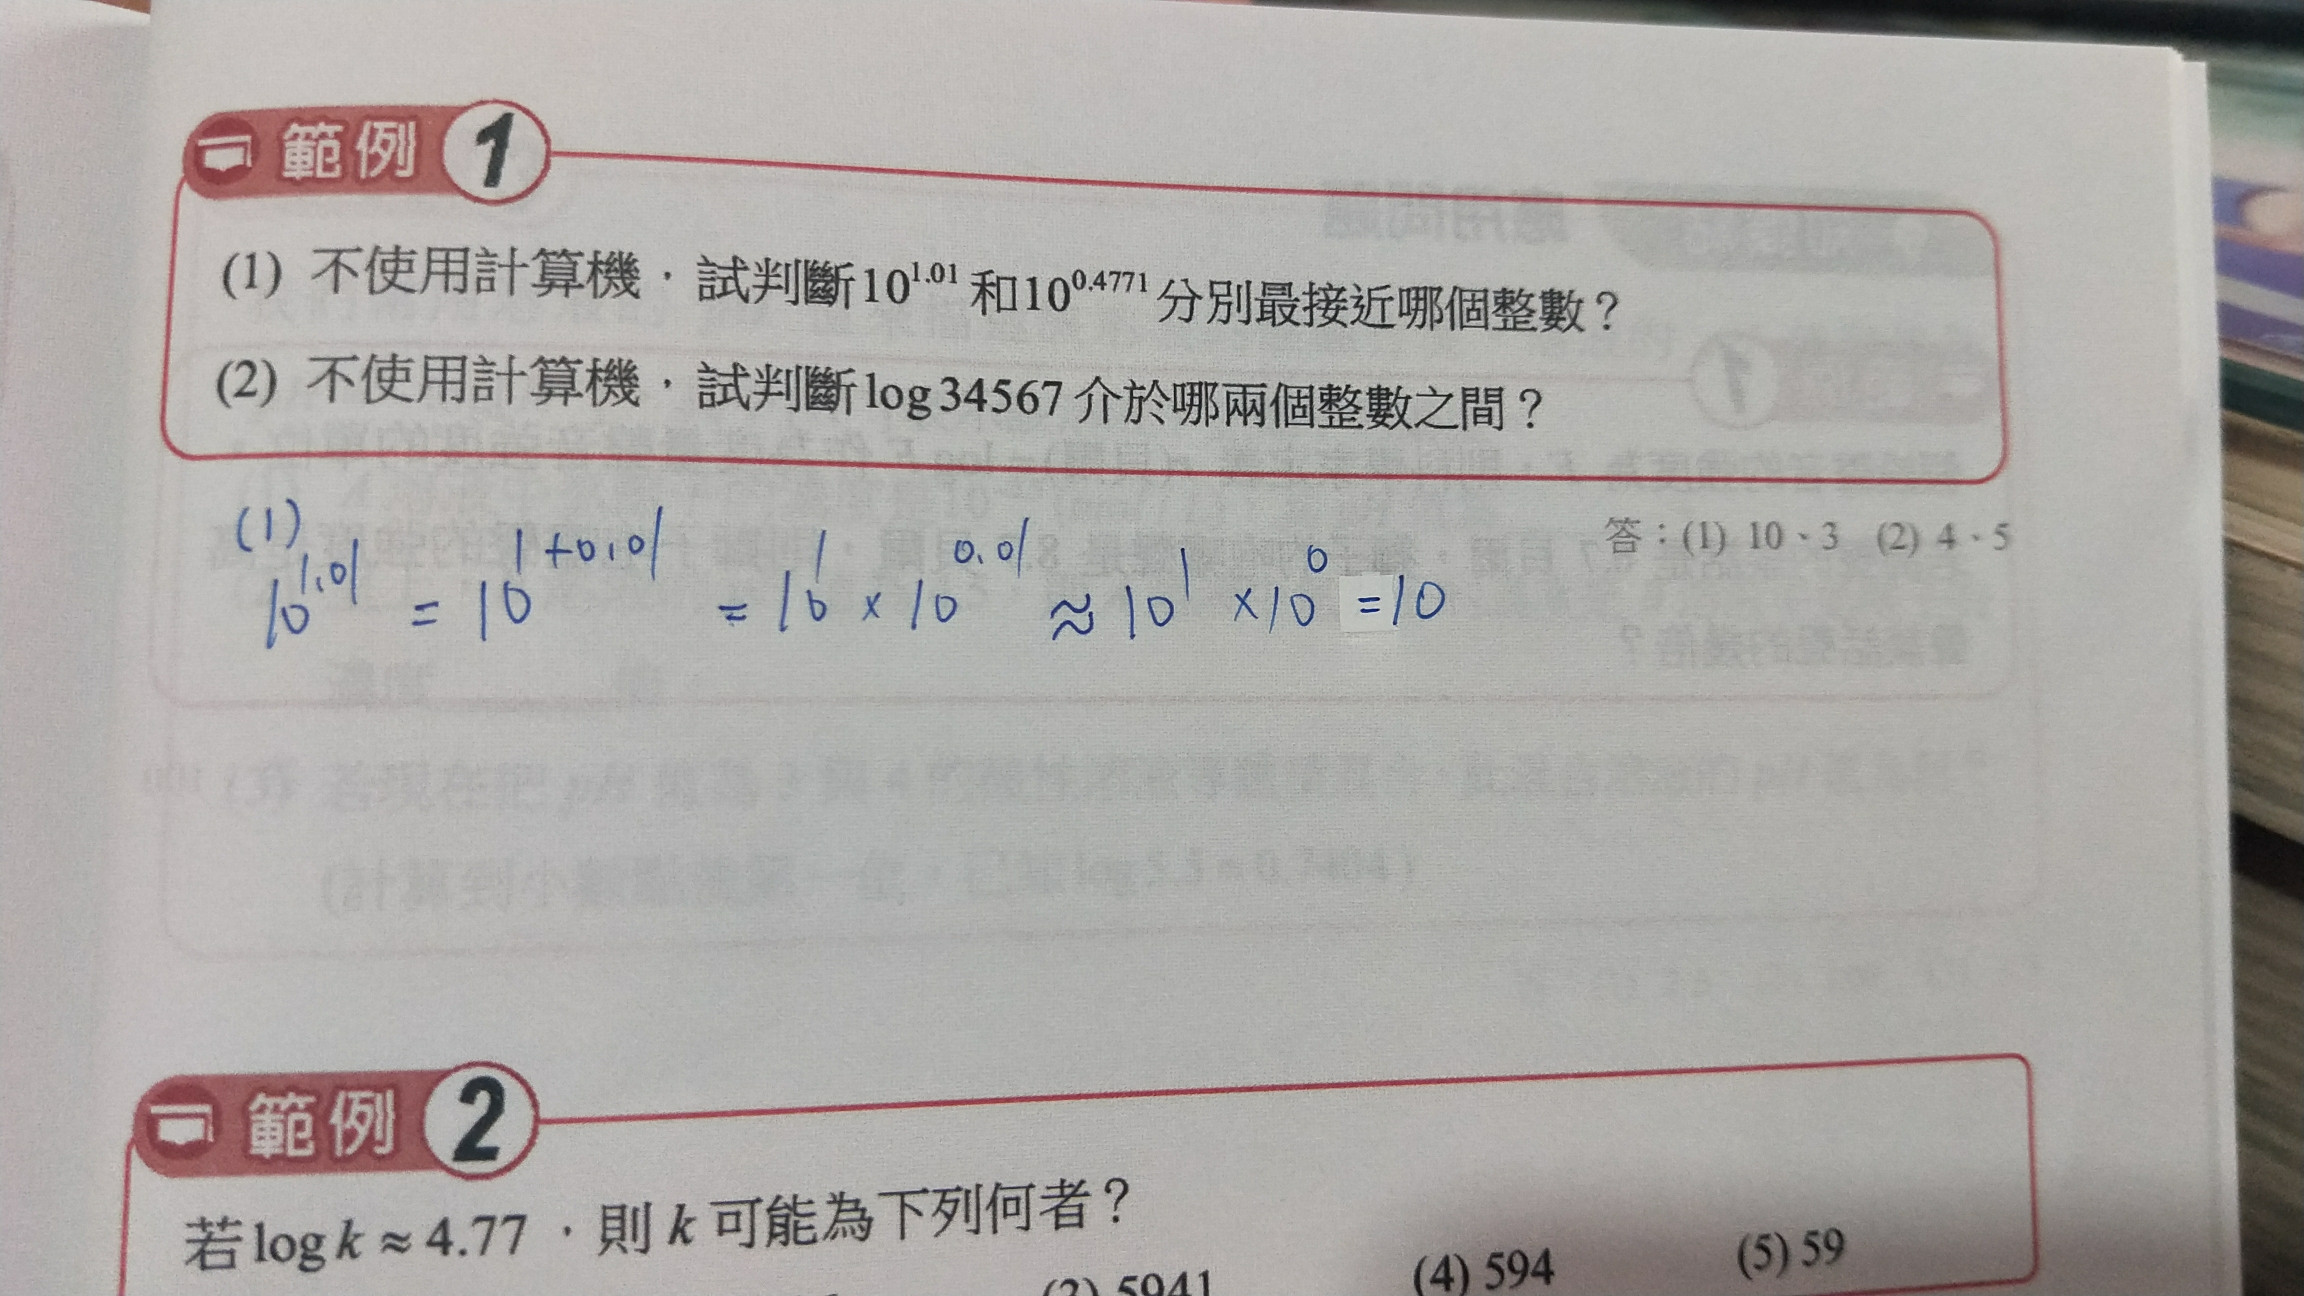 範例 1
(1) 不使用計算機，試判斷10^1.01 和10^0.4771 分別最接近哪個整數？
(2) 不使用計算機，試判斷log34567 介於哪兩個整數之間？
答：(1) 10、3 (2) 4、5
(1)
10^1.01 = 10^1+0.01 = 10^1 × 10^0.01 ≈ 10^1 ×10^0 =10
範例 2
若log k ≈ 4.77 ，則 k 可能為下列何者？
5941 (4) 594 (5) 59